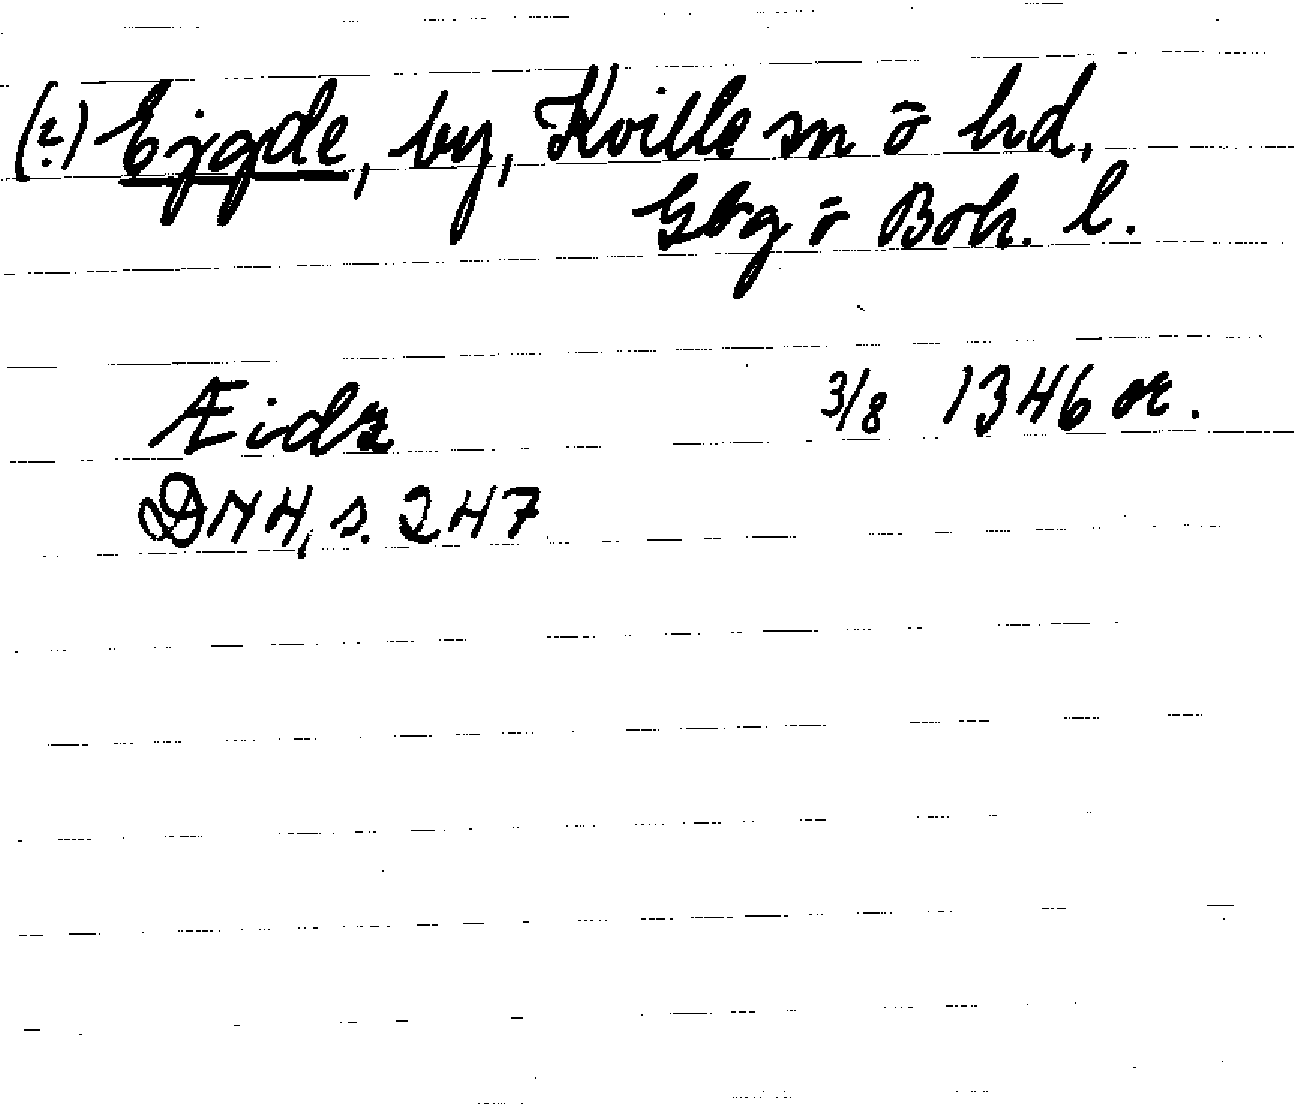 (?) Ejgde, by, Kville sn o hd,
Gbg o Boh. l.
Æidz 3/8 1346 or.
DN 4, s. 247